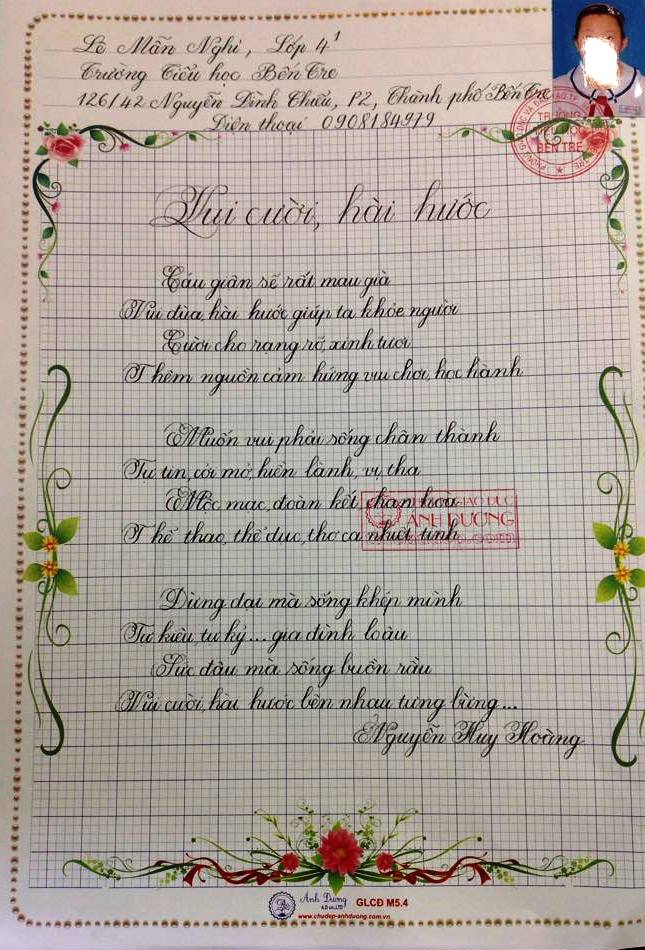 Lê Mẫn Nghi, Lớp 4¹
Trường Tiểu học Bến Tre
126/42 Nguyễn Đình Chiểu, P2, Thành phố Bến Tre
Điện thoại 0908184979
TRƯỜNG
TIỂU HỌC
BẾN TRE
Vui cười, hài hước
Cáu giận sẽ rất mau già
Vui đùa, hài hước giúp ta khỏe người
Cười cho rạng rỡ, xinh tươi
Thêm nguồn cảm hứng vui chơi, học hành
Muốn vui phải sống chân thành
Tự tin, cởi mở, hiền lành, vị tha
Mộc mạc, đoàn kết, chan hoà
Thể thao, thể dục, thơ ca nhiệt tình
GIÁO DỤC
ÁNH DƯƠNG
Đừng dại mà sống khép mình
Tự kiêu, tự kỷ... gia đình loàu
Sức đâu mà sống buồn rầu
Vui cười, hài hước bên nhau tưng bừng...
Nguyễn Huy Hoàng
Ánh Dương
A.D co.,LTD
GLCĐ M5.4
www.chudep-anhduong.com.vn